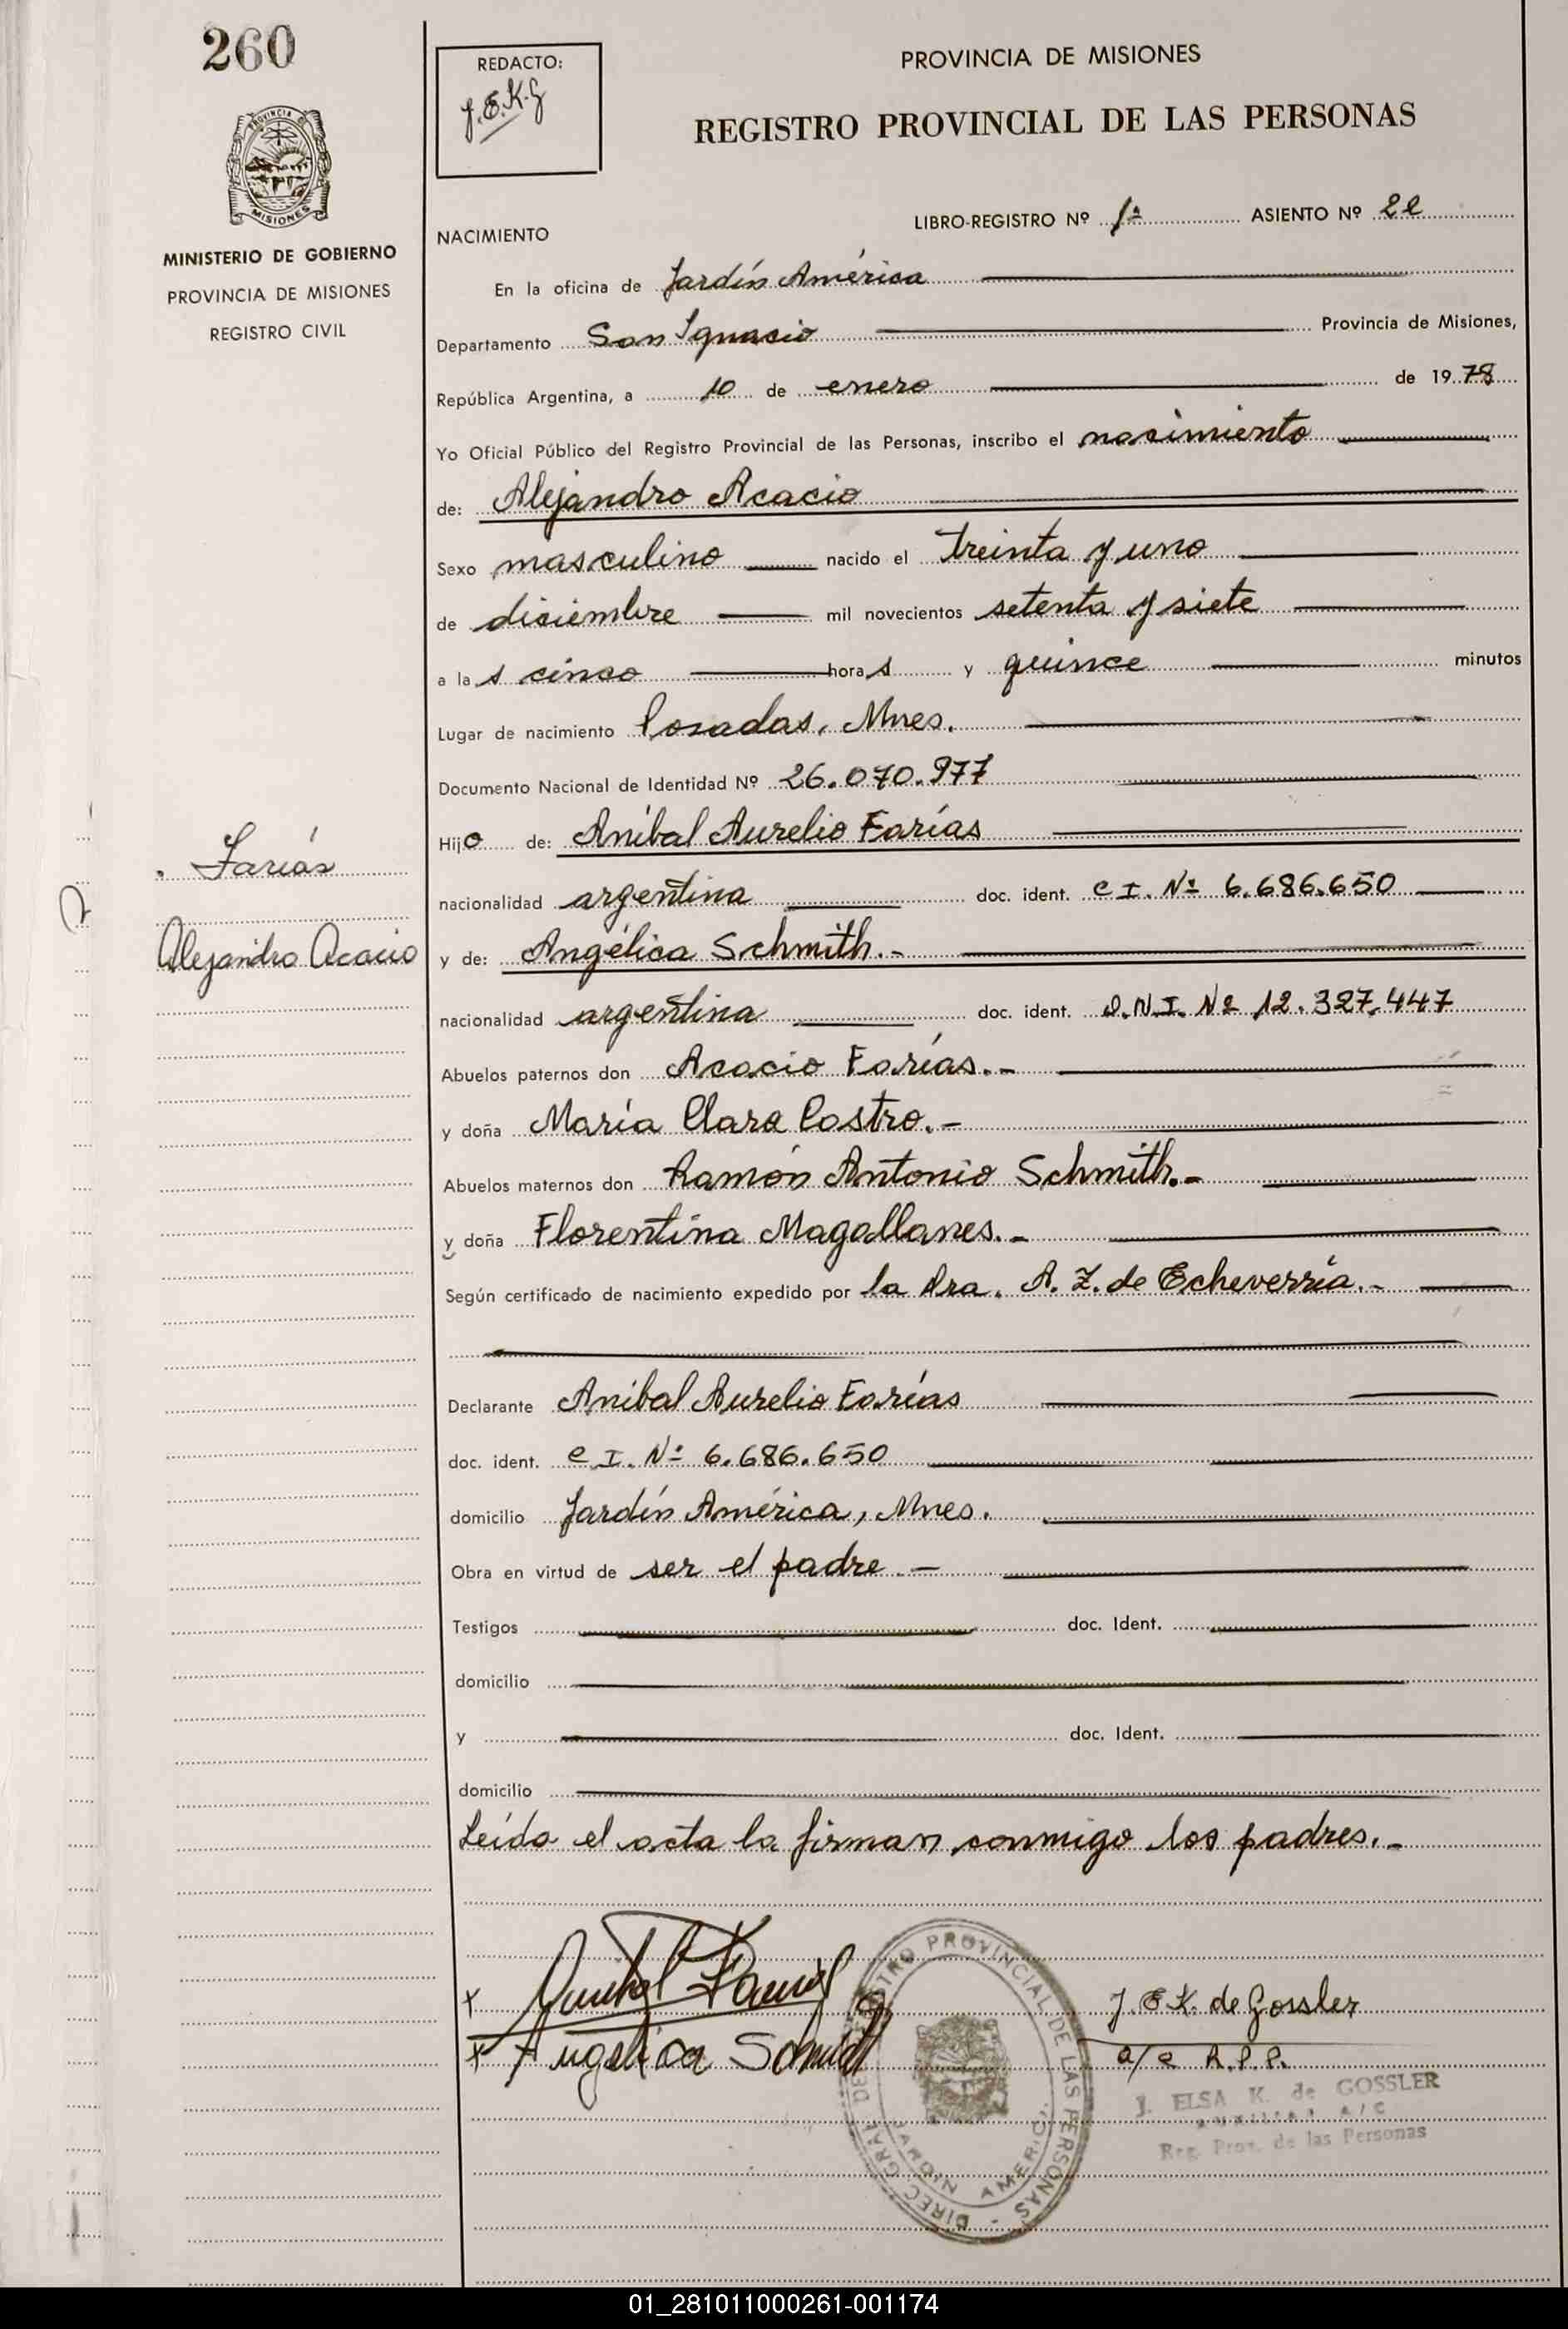 260
REDACTO:
J.E.K.G
PROVINCIA DE MISIONES
REGISTRO PROVINCIAL DE LAS PERSONAS
PROVINCIA DE
MISIONES
MINISTERIO DE GOBIERNO
PROVINCIA DE MISIONES
REGISTRO CIVIL
LIBRO-REGISTRO Nº 1º ASIENTO Nº 22
NACIMIENTO
En la oficina de Jardín América
Departamento San Ignacio Provincia de Misiones,
República Argentina, a 10 de enero de 1978
Yo Oficial Público del Registro Provincial de las Personas, inscribo el nacimiento
de: Alejandro Acacio
Sexo masculino nacido el treinta y uno
de diciembre mil novecientos setenta y siete
a las cinco horas y quince minutos
Lugar de nacimiento Posadas, Mnes.
Documento Nacional de Identidad Nº 26.070.977
Hijo de: Aníbal Aurelio Farías
Farías
nacionalidad argentina doc. ident. C.I. Nº 6.686.650
Alejandro Acacio
y de: Angélica Schmith.-
nacionalidad argentina doc. ident. D.N.I. Nº 12.327.447
Abuelos paternos don Acacio Farías.-
y doña María Clara Castro.-
Abuelos maternos don Ramón Antonio Schmith.-
y doña Florentina Magallanes.-
Según certificado de nacimiento expedido por la Dra. A. Z. de Echeverría.-
Declarante Aníbal Aurelio Farías
doc. ident. C.I. Nº 6.686.650
domicilio Jardín América, Mnes.
Obra en virtud de ser el padre.-
Testigos doc. Ident.
domicilio
y doc. Ident.
domicilio
Leída el acta la firman conmigo los padres.-
x Anibal Farias
x Angelica Schmidt
J. E K. de Gossler
a/c R.P.P.
DIREC. GRAL. DEL REGISTRO PROVINCIAL DE LAS PERSONAS -
JARDIN AMERICA
J. ELSA K. de GOSSLER
AUXILIAR A/C
Reg. Prov. de las Personas
01_281011000261-001174